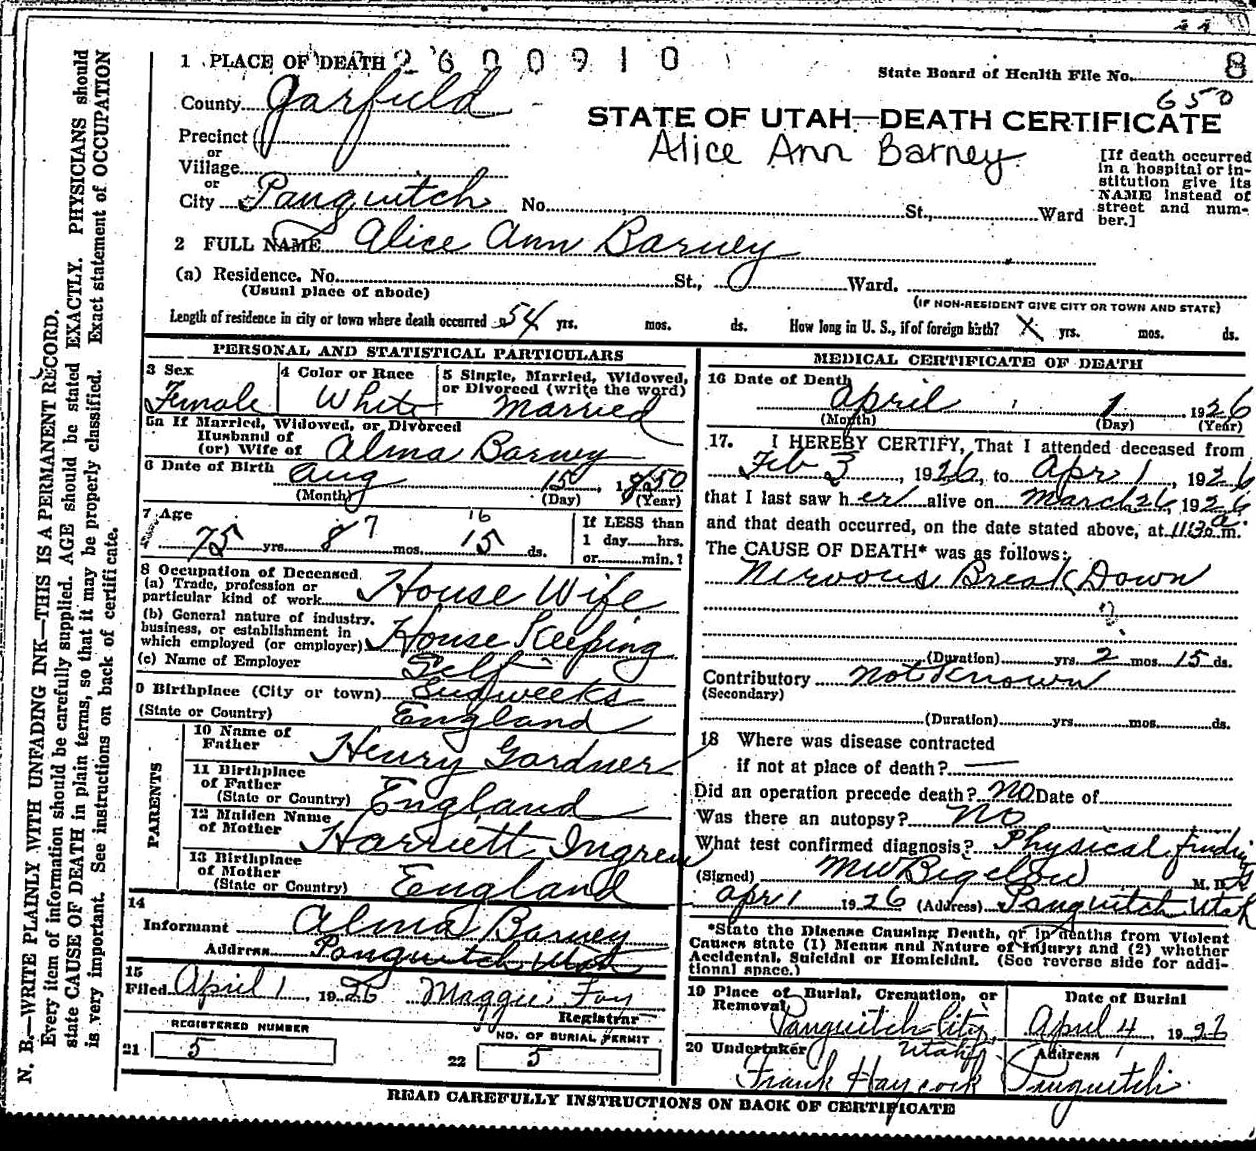 1 PLACE OF DEATH 2600910
State Board of Health File No. 8
650
County Garfield
STATE OF UTAH—DEATH CERTIFICATE
Alice Ann Barney
Precinct
or
Village
or
City Panguitch No. St., Ward
[If death occurred
in a hospital or in-
stitution give its
NAME instead of
street and num-
ber.]
2 FULL NAME Alice Ann Barney
(a) Residence. No. St., Ward.
(Usual place of abode)
(IF NON-RESIDENT GIVE CITY OR TOWN AND STATE)
Length of residence in city or town where death occurred 54 yrs. mos. ds. How long in U. S., if of foreign birth? X yrs. mos. ds.
PERSONAL AND STATISTICAL PARTICULARS
3 Sex
Female
4 Color or Race
White
5 Single, Married, Widowed,
or Divorced (write the word)
Married
5a If Married, Widowed, or Divorced
Husband of
(or) Wife of Alma Barney
6 Date of Birth Aug 15, 1850
(Month) (Day) (Year)
7 Age
75 yrs. 8 7 mos. 16 15 ds.
If LESS than
1 day hrs.
or min.?
8 Occupation of Deceased
(a) Trade, profession or
particular kind of work House Wife
(b) General nature of industry,
business, or establishment in
which employed (or employer) House Keeping
(c) Name of Employer Self
9 Birthplace (City or town) Sudweeks
(State or Country) England
PARENTS
10 Name of
Father Henry Gardner
11 Birthplace
of Father
(State or Country) England
12 Maiden Name
of Mother Harriett Ingrew
13 Birthplace
of Mother
(State or Country) England
14
Informant Alma Barney
Address Panguitch Utah
15
Filed April 1, 1926 Maggie Foy
Registrar
REGISTERED NUMBER
21 5
NO. OF BURIAL PERMIT
22 5
MEDICAL CERTIFICATE OF DEATH
16 Date of Death
April 1 1926
(Month) (Day) (Year)
17. I HEREBY CERTIFY, That I attended deceased from
Feb 3, 1926, to Apr 1, 1926
that I last saw her alive on March 26, 1926
and that death occurred, on the date stated above, at 11:30 a.m.
The CAUSE OF DEATH* was as follows:
Nervous Break Down
(Duration) yrs. 2 mos. 15 ds.
Contributory not known
(Secondary)
(Duration) yrs. mos. ds.
18 Where was disease contracted
if not at place of death? —
Did an operation precede death? no Date of
Was there an autopsy? No
What test confirmed diagnosis? Physical finding
(Signed) MW Bigelow M. D.
Apr 1 1926 (Address) Panguitch Utah
*State the Disease Causing Death, or in deaths from Violent
Causes state (1) Means and Nature of Injury; and (2) whether
Accidental, Suicidal or Homicidal. (See reverse side for addi-
tional space.)
19 Place of Burial, Cremation, or
Removal
Panguitch City,
Utah
Date of Burial
April 4 1926
20 Undertaker
Frank Haycock
Address
Panguitch
READ CAREFULLY INSTRUCTIONS ON BACK OF CERTIFICATE
N. B.—WRITE PLAINLY WITH UNFADING INK—THIS IS A PERMANENT RECORD.
Every item of information should be carefully supplied. AGE should be stated EXACTLY. PHYSICIANS should
state CAUSE OF DEATH in plain terms, so that it may be properly classified. Exact statement of OCCUPATION
is very important. See instructions on back of certificate.